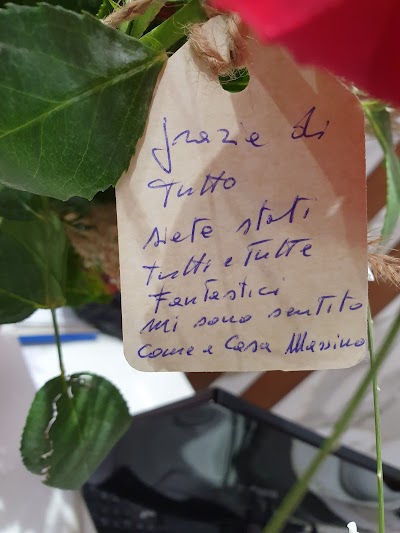 grazie di
Tutto
siete stati
tutti e tutte
Fantastici
mi sono sentito
come a casa Massimo